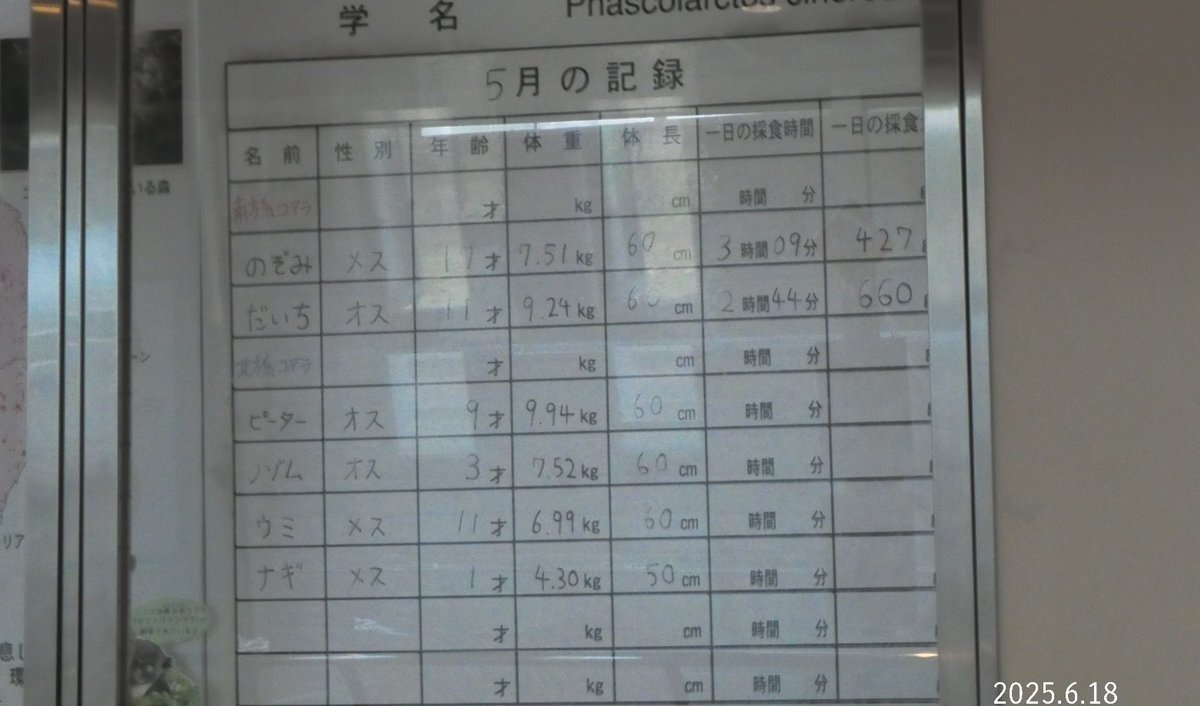 学名 Phascolarctos cinereus
5月の記録
名前 性別 年齢 体重 体長 一日の採食時間 一日の採食
南方系コアラ 才 kg cm 時間 分
のぞみ メス 17才 7.51kg 60cm 3時間09分 427g
だいち オス 11才 9.24kg 60cm 2時間44分 660g
北方系コアラ 才 kg cm 時間 分
ピーター オス 9才 9.94kg 60cm 時間 分
ノゾム オス 3才 7.52kg 60cm 時間 分
ウミ メス 11才 6.99kg 60cm 時間 分
ナギ メス 1才 4.30kg 50cm 時間 分
才 kg cm 時間 分
才 kg cm 時間 分
いる森
ーン
リア
息し
環
2025.6.18